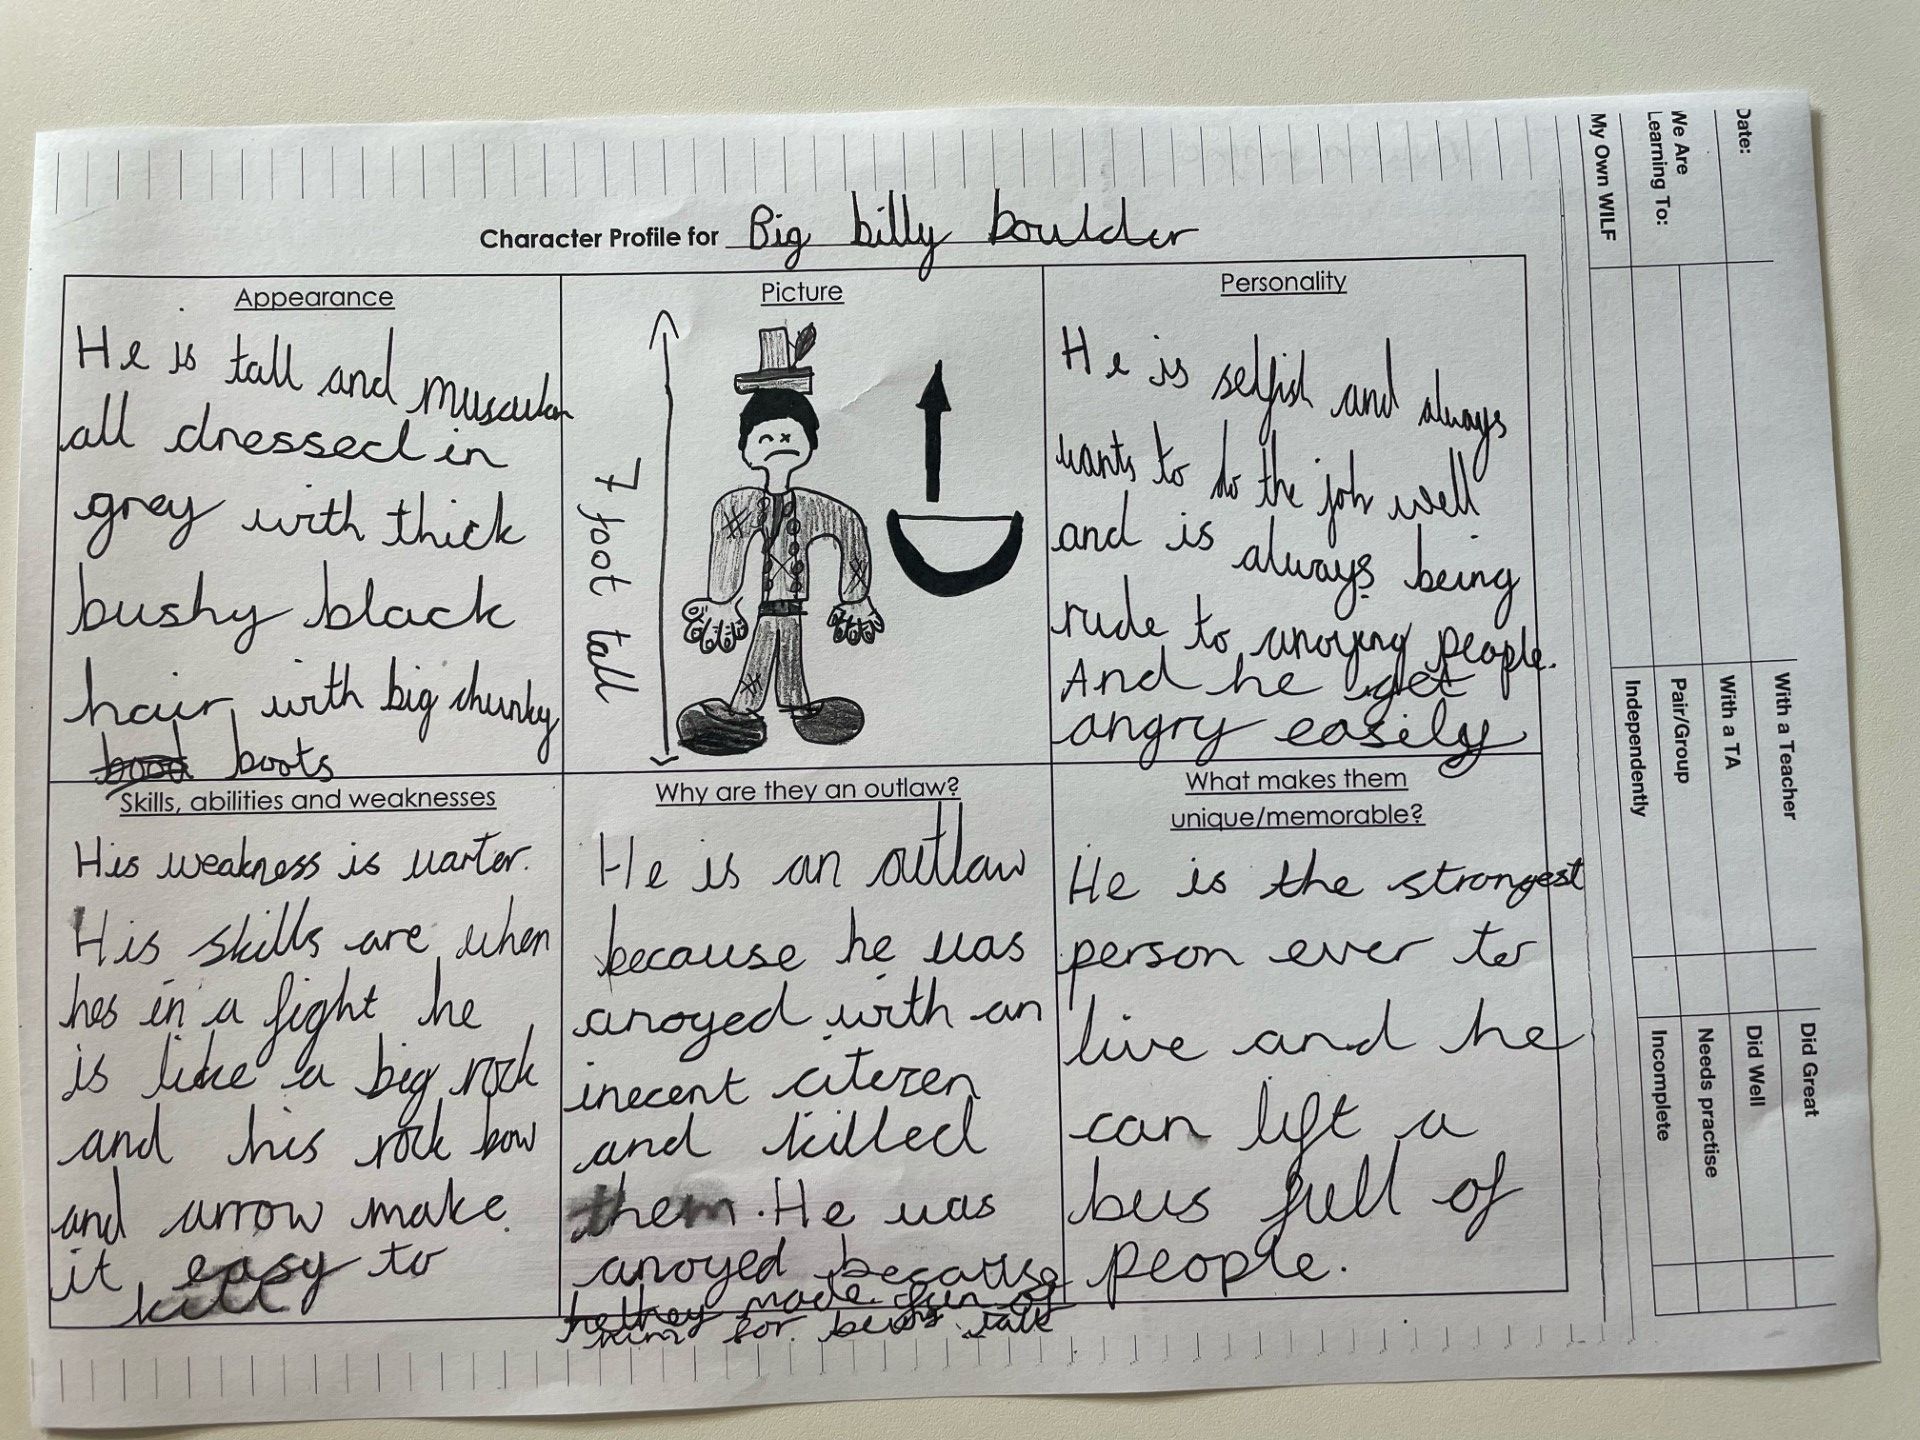 Character Profile for Big billy boulder
Appearance
He is tall and muscular
all dressed in
grey with thick
bushy black
hair with big chunky
boots
Picture
7 foot tall
Personality
He is selfish and always
wants to do the job well
and is always being
rude to anoying people.
And he get
angry easily
Skills, abilities and weaknesses
His weakness is warter.
His skills are when
hes in a fight he
is like a big rock
and his rock bow
and arrow make
it easy to
kill
Why are they an outlaw?
He is an outlaw
because he was
anoyed with an
inecent citezen
and killed
them. He was
anoyed because
they made fun of
him for being tall
What makes them
unique/memorable?
He is the strongest
person ever to
live and he
can lift a
bus full of
people.
Date:
We Are
Learning To:
My Own WILF
With a Teacher
With a TA
Pair/Group
Independently
Did Great
Did Well
Needs practise
Incomplete